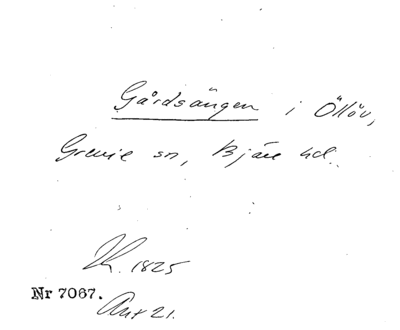 Gårdsängen i Öllöv,
Grevie sn, Bjäre hd.
K. 1825
Nr 7067.
Ant 21.